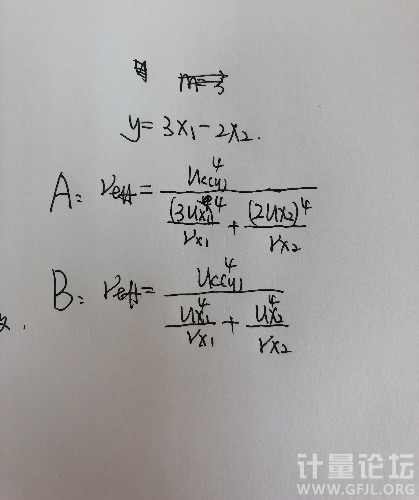 m=3
y=3x₁-2x₂.
A: νeff = uc(y)⁴ / ((3ux₁)⁴/νx₁ + (2ux₂)⁴/νx₂)
B: νeff = uc(y)⁴ / (ux₁⁴/νx₁ + ux₂⁴/νx₂)
计量论坛
WWW.GFJL.ORG